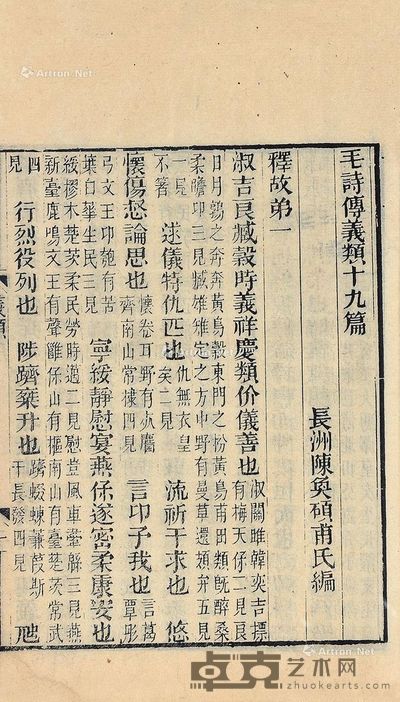 毛詩傳義類十九篇
長洲陳奐碩甫氏編
釋故弟一
淑吉良臧穀時義祥慶類价儀善也
淑關雎韓奕吉摽
有梅天保二見良
日月鶉之奔奔黃鳥穀東門之枌黃鳥甫田類旣醉桑
柔瞻卬三見臧雄雉定之方中野有蔓草還頍弁五見
一見
不箸
逑儀特仇匹也
仇無衣皇
矣二見
流祈干求也
悠
懷傷惄論思也
懷卷耳野有死麕
齊南山常棣四見
言卬子我也
言葛
覃彤
弓文王卬匏有苦
葉白華生民三見
寧綏靜慰宴燕保遂密柔康安也
綏樛木楚茨柔民勞時邁二見慰凱風車舝緜三見燕
新臺鹿鳴文王有聲雝保山有樞南山有臺楚茨常武
四
見
行烈役列也
陟躋椉升也
躋蝃蝀蒹葭斯
干長發四見
虺
義類
Artron.Net
Artron.Net
卓克艺术网